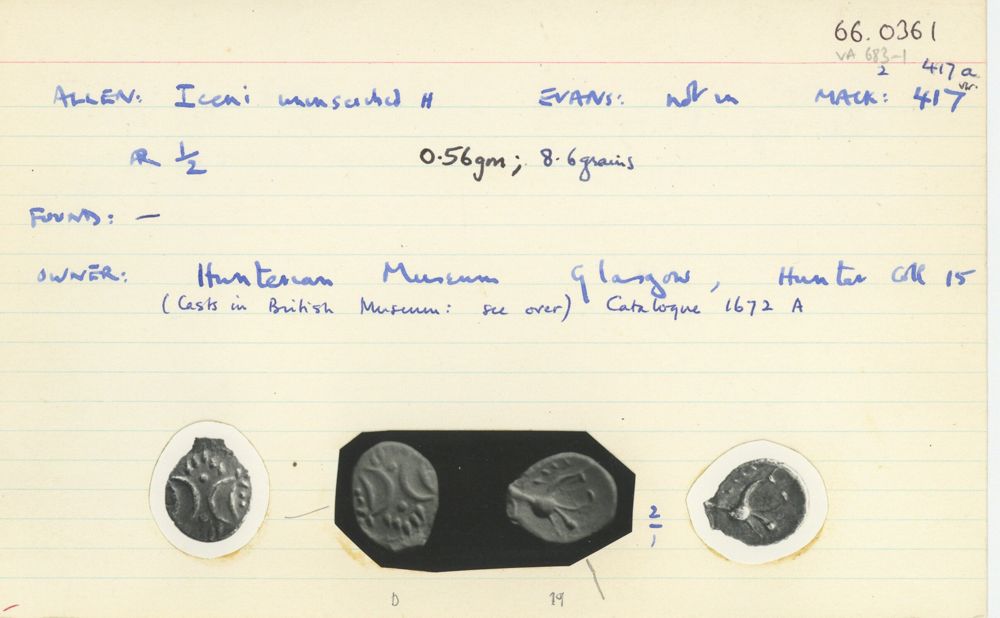 66.0361
VA 683-1
2 417a
ALLEN: Iceni uninscribed H EVANS: not in MACK: 417 var.
AR 1/2 0.56gm; 8.6grains
FOUND: —
OWNER: Hunterian Museum Glasgow, Hunter Coll 15
(Casts in British Museum: see over) Catalogue 1672 A
2/1
D 19